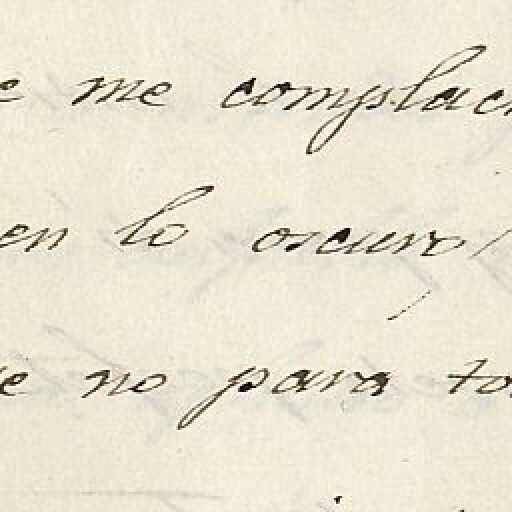 e me complac
en lo oscuro
e no para to